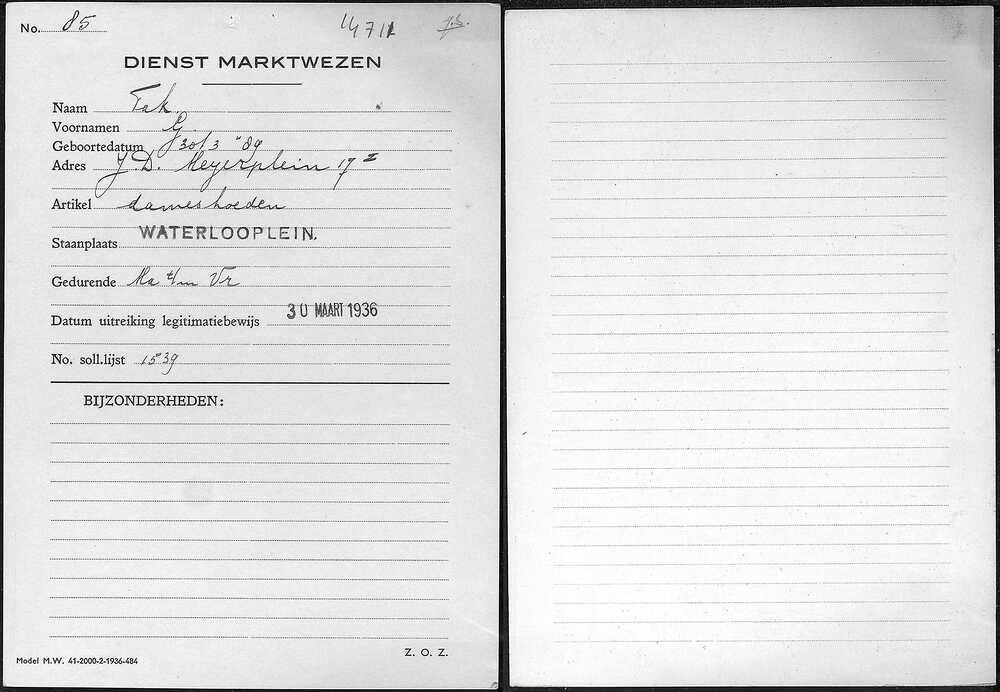 No. 85
DIENST MARKTWEZEN
Naam Tak
Voornamen G.
Geboortedatum 30/3 "89
Adres J. D. Meyerplein 17 I
Artikel dameshoeden
Staanplaats WATERLOOPLEIN.
Gedurende Ma t/m Vr
Datum uitreiking legitimatiebewijs 30 MAART 1936
No. soll.lijst 1539
BIJZONDERHEDEN:
Z. O. Z.
Model M.W. 41-2000-2-1936-484